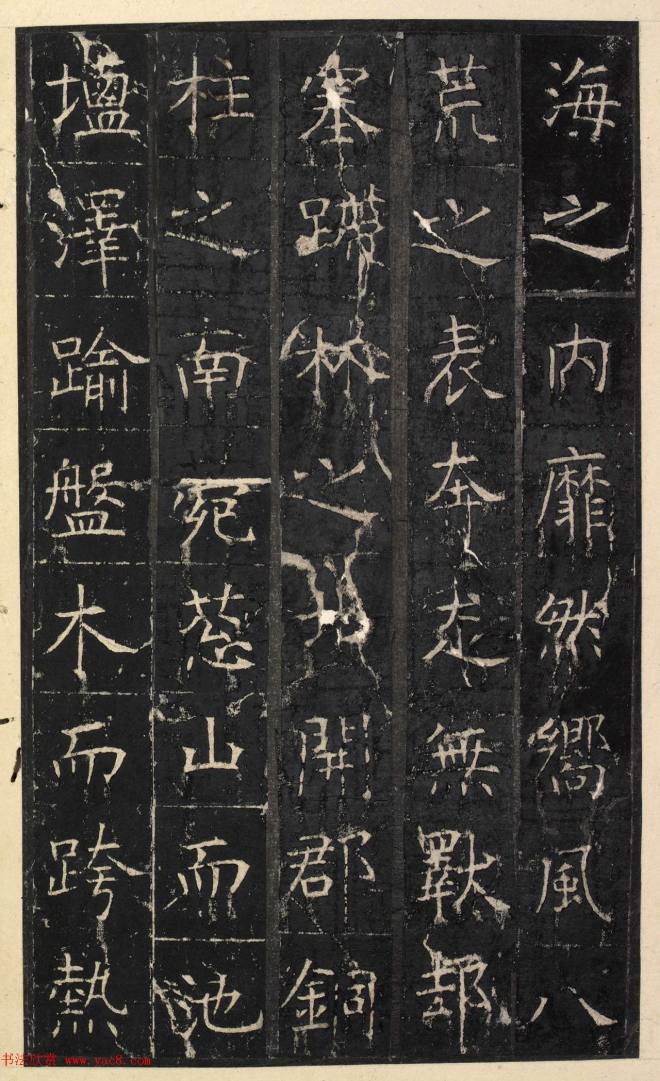 海之内靡然嚮風八
荒之表奔走無斁
塞蹛林之北開郡銅
柱之南宛葱山而池
塩澤踰盤木而跨熱
书法欣赏 www.yac8.com